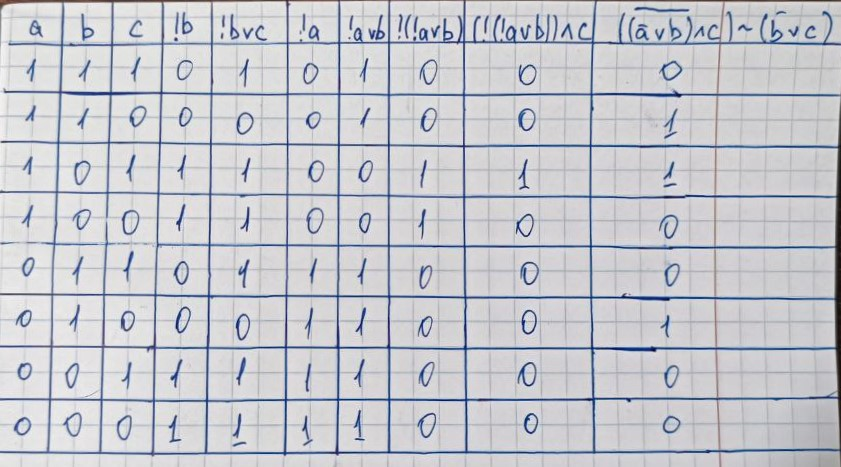 a b c !b !bvc !a !avb !(!avb) (!(!avb))∧c ((a̅v̅b̅)∧c)~(b̄vc)
1 1 1 0 1 0 1 0 0 0
1 1 0 0 0 0 1 0 0 1
1 0 1 1 1 0 0 1 1 1
1 0 0 1 1 0 0 1 0 0
0 1 1 0 1 1 1 0 0 0
0 1 0 0 0 1 1 0 0 1
0 0 1 1 1 1 1 0 0 0
0 0 0 1 1 1 1 0 0 0